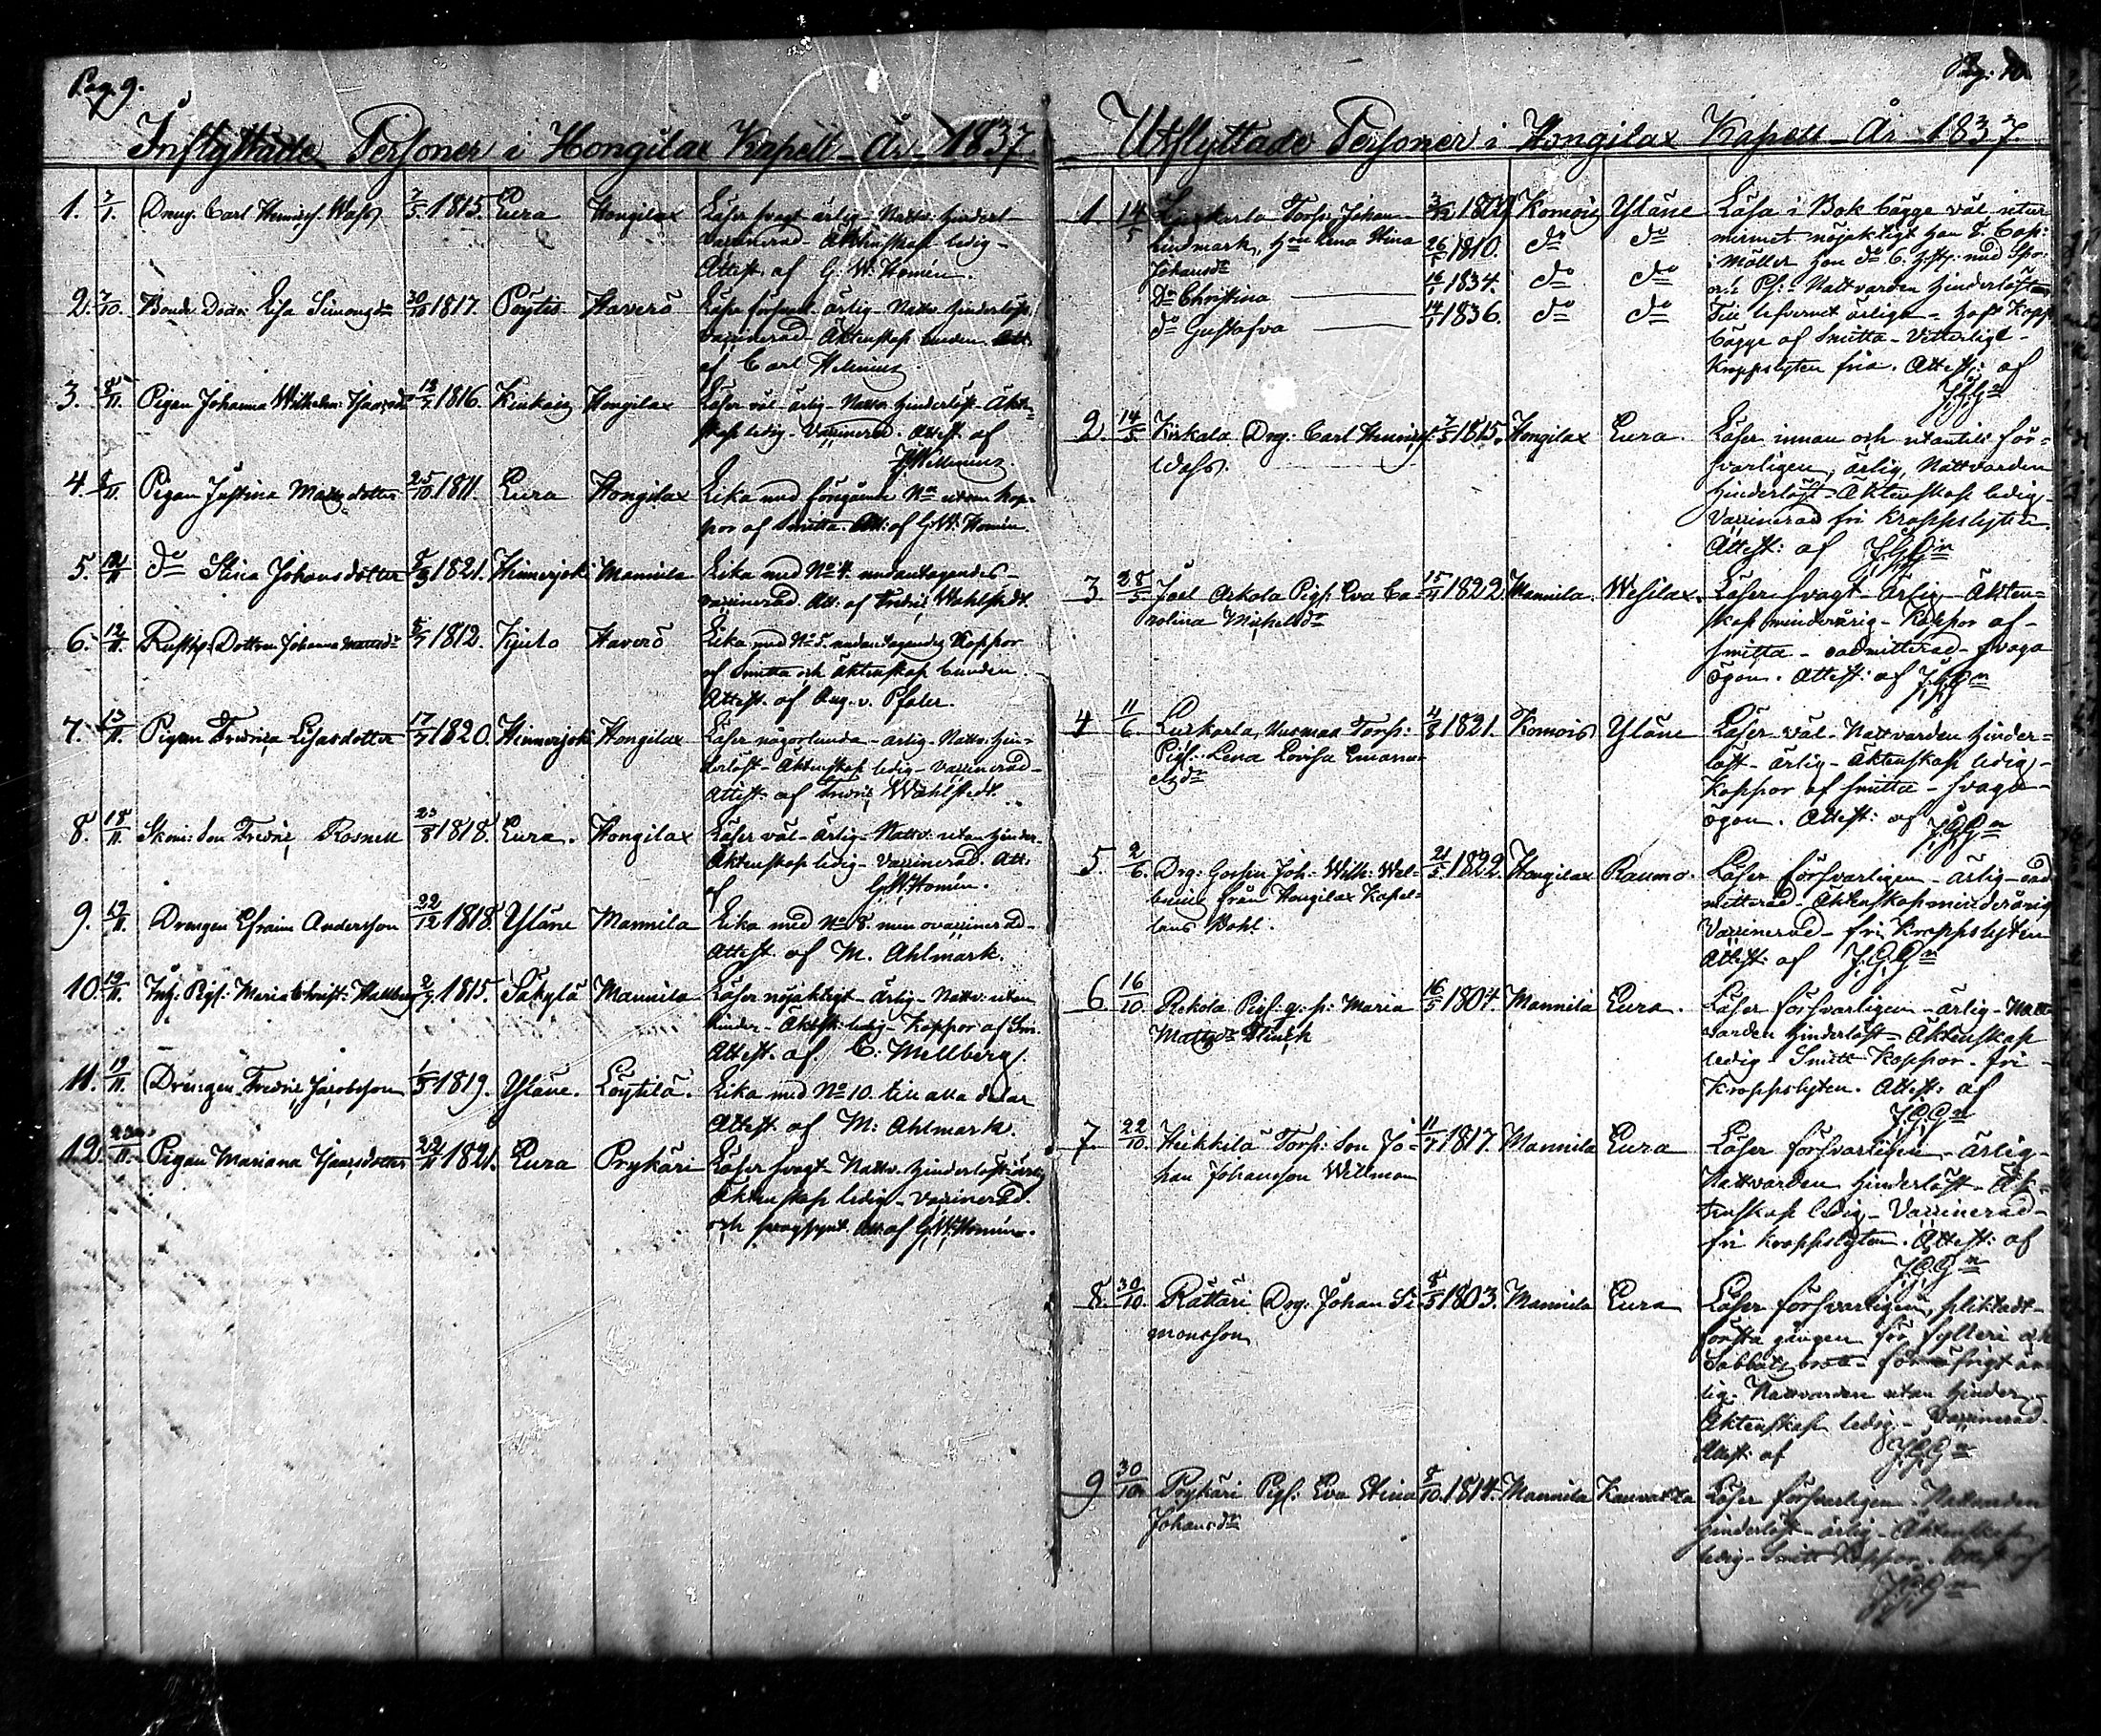 Pag. 9.
Inflyttade Personer i Hongilax Kapell År 1837.
1. 7/1. Dräng. Carl Henrich Wass 7/5 1815. Eura Hongilax Läser svagt ärlig - Nattv. hinderl.
vaccinerad - Äktenskap ledig -
Attest. af G. W. Homén.
2. 7/10. Bonde Dottr: Lisa Simonsdr 30/10 1817. Pöytis Haverö Läser försvarl. ärlig - Nattv. hinderlöst
vaccinerad - Äktenskap bunden. Att:
af Carl Helenius
3. 8/11. Pigan Johanna Wilhelm: Isaacsdr 13/7 1816. Kiukais Hongilax Läser väl - ärlig - Nattv. hinderlöst - Äkten-
skap ledig - Vaccinerad. Attest. af
4. 8/11. Pigan Justina Mattsdotter 25/10 1811. Eura Hongilax Lika med föregående No utom kop-
por af smitta. Att: af G. W. Homén.
5. 12/11 do Stina Johansdotter 8/3 1821. Hinnerjoki Mannila Lika med No 4. undantagandes -
vaccinerad. Att: af Fredric Wahlstedt.
6. 12/11. Dottren Johanna Mattsdr 1812. Kjulo Haverö Lika med No 5. undantagandes koppor
af smitta och äktenskap bunden.
Attest. af Aug. v. Pfaler.
7. 13/11. Pigan Fredrica Lisasdotter 17/7 1820. Hinnerjoki Hongilax Läser någorlunda - ärlig - Nattv. hin-
derlöst - Äktenskap ledig - vaccinerad -
Attest. af Fredric Wahlstedt.
8. 18/11. Skom: Son Fredric Rosnell 23/8 1818. Eura. Hongilax Läser väl - ärlig - Nattv: utan hinder -
Äktenskap ledig - vaccinerad. Att.
af G. W. Homén.
9. 19/11. Drengen Efraim Andersson 22/12 1818. Yläne Mannila Lika med No 8. men ovaccinerad -
Attest. af M. Ahlmark.
10. 19/11. Inh: Pigs: Maria Christ: Hallberg 2/7 1815. Säkylä Mannila Läser nöjaktigt - ärlig - Nattv: utan
hinder - Äktsk: ledig - Koppor af Sm.
Attest. af C: Mellberg.
11. 19/11. Drengen Fredric Jacobsson 1/5 1819. Yläne. Löytilä. Lika med No 10. till alla delar
Attest. af M: Ahlmark.
12. 23/11. Pigan Mariana Isaacsdotter 22/11 1821. Eura Prykäri Läser svagt - Nattv. hinderlöst ärlig
Äktenskap ledig - vaccinerad.
och svagsynt. Att. af G. W. Homén.
Pag: 10.
Utflyttade Personer i Hongilax Kapell År 1837.
1 14/5 Torp: Johan 1809 Komois Yläne Läsa i Bok bägge väl utur
Lindmark, Hu Lena Stina 26/5 1810. do do minnet nöjaktigt
Johansdr
Dr Christina 16/1 1834. do do Nattvarden hinderlöst
do Gustafva 14/1 1836. do do Till lefvernet ärliga - haft Kopp:
bägge af Smitta - Vetterligt -
Kroppslyten fria. Attest: af
J.G.Gn
2. 14/5 Kiskala Drg: Carl Henrich 7/5 1815. Hongilax Eura. Läser innan och utantill för-
Wass. svarligen, ärlig, Nattvarden
hinderlöst - Äktenskap ledig -
Vaccinerad fri kroppslyten.
Attest: af J.G.Gn
3 28/5 Joel Arkola Pigs: Eva Ca- 15/4 1822. Mannila. Wesilax. Läser svagt - ärlig - Äkten-
rolina Michelsdr skap minderårig - Koppor af -
smitta - oadmitterad - svaga
ögon. Attest: af J.G.Gn
4 11/6 Husman Torp: 4/8 1821. Komois Yläne Läser väl - Nattvarden hinder-
Pigs: Lena Lovisa Emanu- löst - ärlig - Äktenskap ledig -
elsdr Koppor af smitta - svaga -
ögon. Attest: af J.G.Gn
5. 2/6. Drg: Gossen Joh: Wilh: Wal- 21/5 1822. Hongilax Raumo. Läser försvarligen - ärlig - oad-
från Hongilax Kapel- mitterad - Äktenskap minderårig
lans Bohl. Vaccinerad - fri Kroppslyten
Attest: af J.G.Gn
6 16/10 Rekola Pigs. Maria 16/5 1804. Mannila Eura. Läser försvarligen - ärlig - Natt-
Mattsdr varden hinderlöst - Äktenskap
ledig - Smitt Koppor - fri -
Kroppslyten. Attest: af
J.G.Gn
7 22/10. Heikkilä Torp: Son Jo- 11/7 1817. Mannila Eura Läser försvarligen - ärlig -
han Johansson Wellman Nattvarden hinderlöst - Äk-
tenskap ledig - Vaccinerad -
fri kroppslyten. Attest: af
J.G.Gn
8. 30/10. Rättäri Drg. Johan Si- 8/5 1803. Mannila Eura Läser försvarligen, pliktadt
monsson första gången för fylleri och
Sabbatsbrott - för öfrigt är-
lig - Nattvarden utan hinder -
Äktenskap ledig - Vaccinerad.
Attest: af J.G.Gn
9 30/10. Prykäri Pigs: Eva Stina 8/10 1814. Mannila Kauvatsa Läser försvarligen - Nattvarden
Johansdr hinderlöst - ärlig - Äktenskap
ledig - Smitt Koppor. Attest af
J.G.Gn